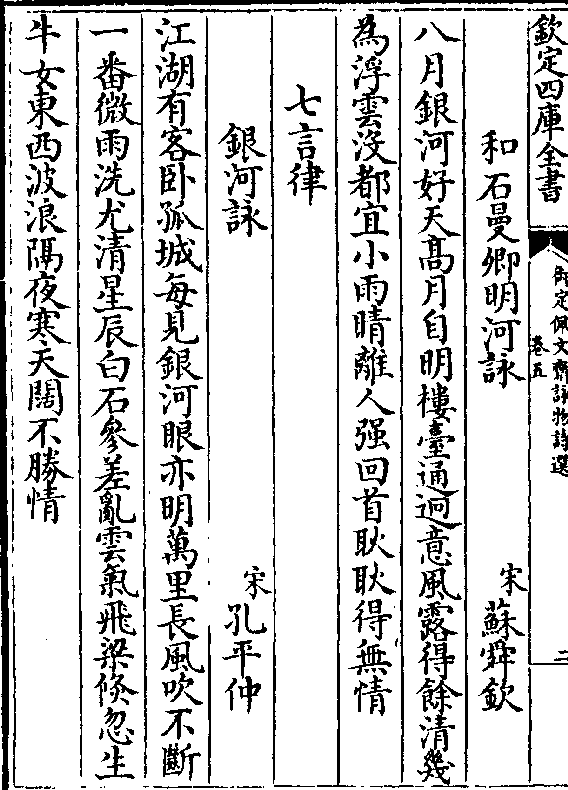 欽定四庫全書
御定佩文齋詠物詩選
卷五
二
和石曼卿明河詠
宋
蘇舜欽
八月銀河好天高月自明樓臺通迥意風露得餘清幾
為浮雲沒都宜小雨晴離人强回首耿耿得無情
七言律
銀河詠
宋
孔平仲
江湖有客卧孤城每見銀河眼亦明萬里長風吹不斷
一番微雨洗尤清星辰白石參差亂雲氣飛梁倐忽生
牛女東西波浪隔夜寒天闊不勝情